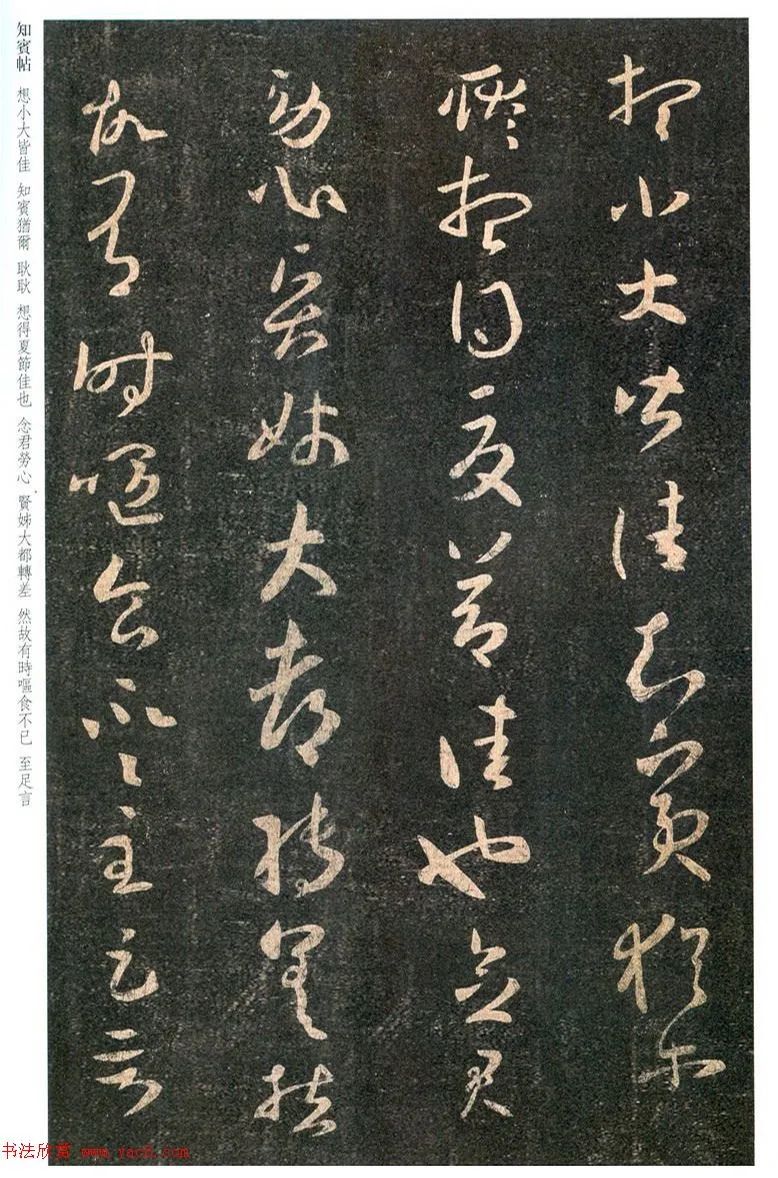 想小大皆佳知賓猶爾
耿耿想得夏節佳也念君
勞心賢姊大都轉差然
故有時嘔食不已至足言
知賓帖 想小大皆佳 知賓猶爾 耿耿 想得夏節佳也 念君勞心 賢姊大都轉差 然故有時嘔食不已 至足言
书法欣赏 www.yac8.com